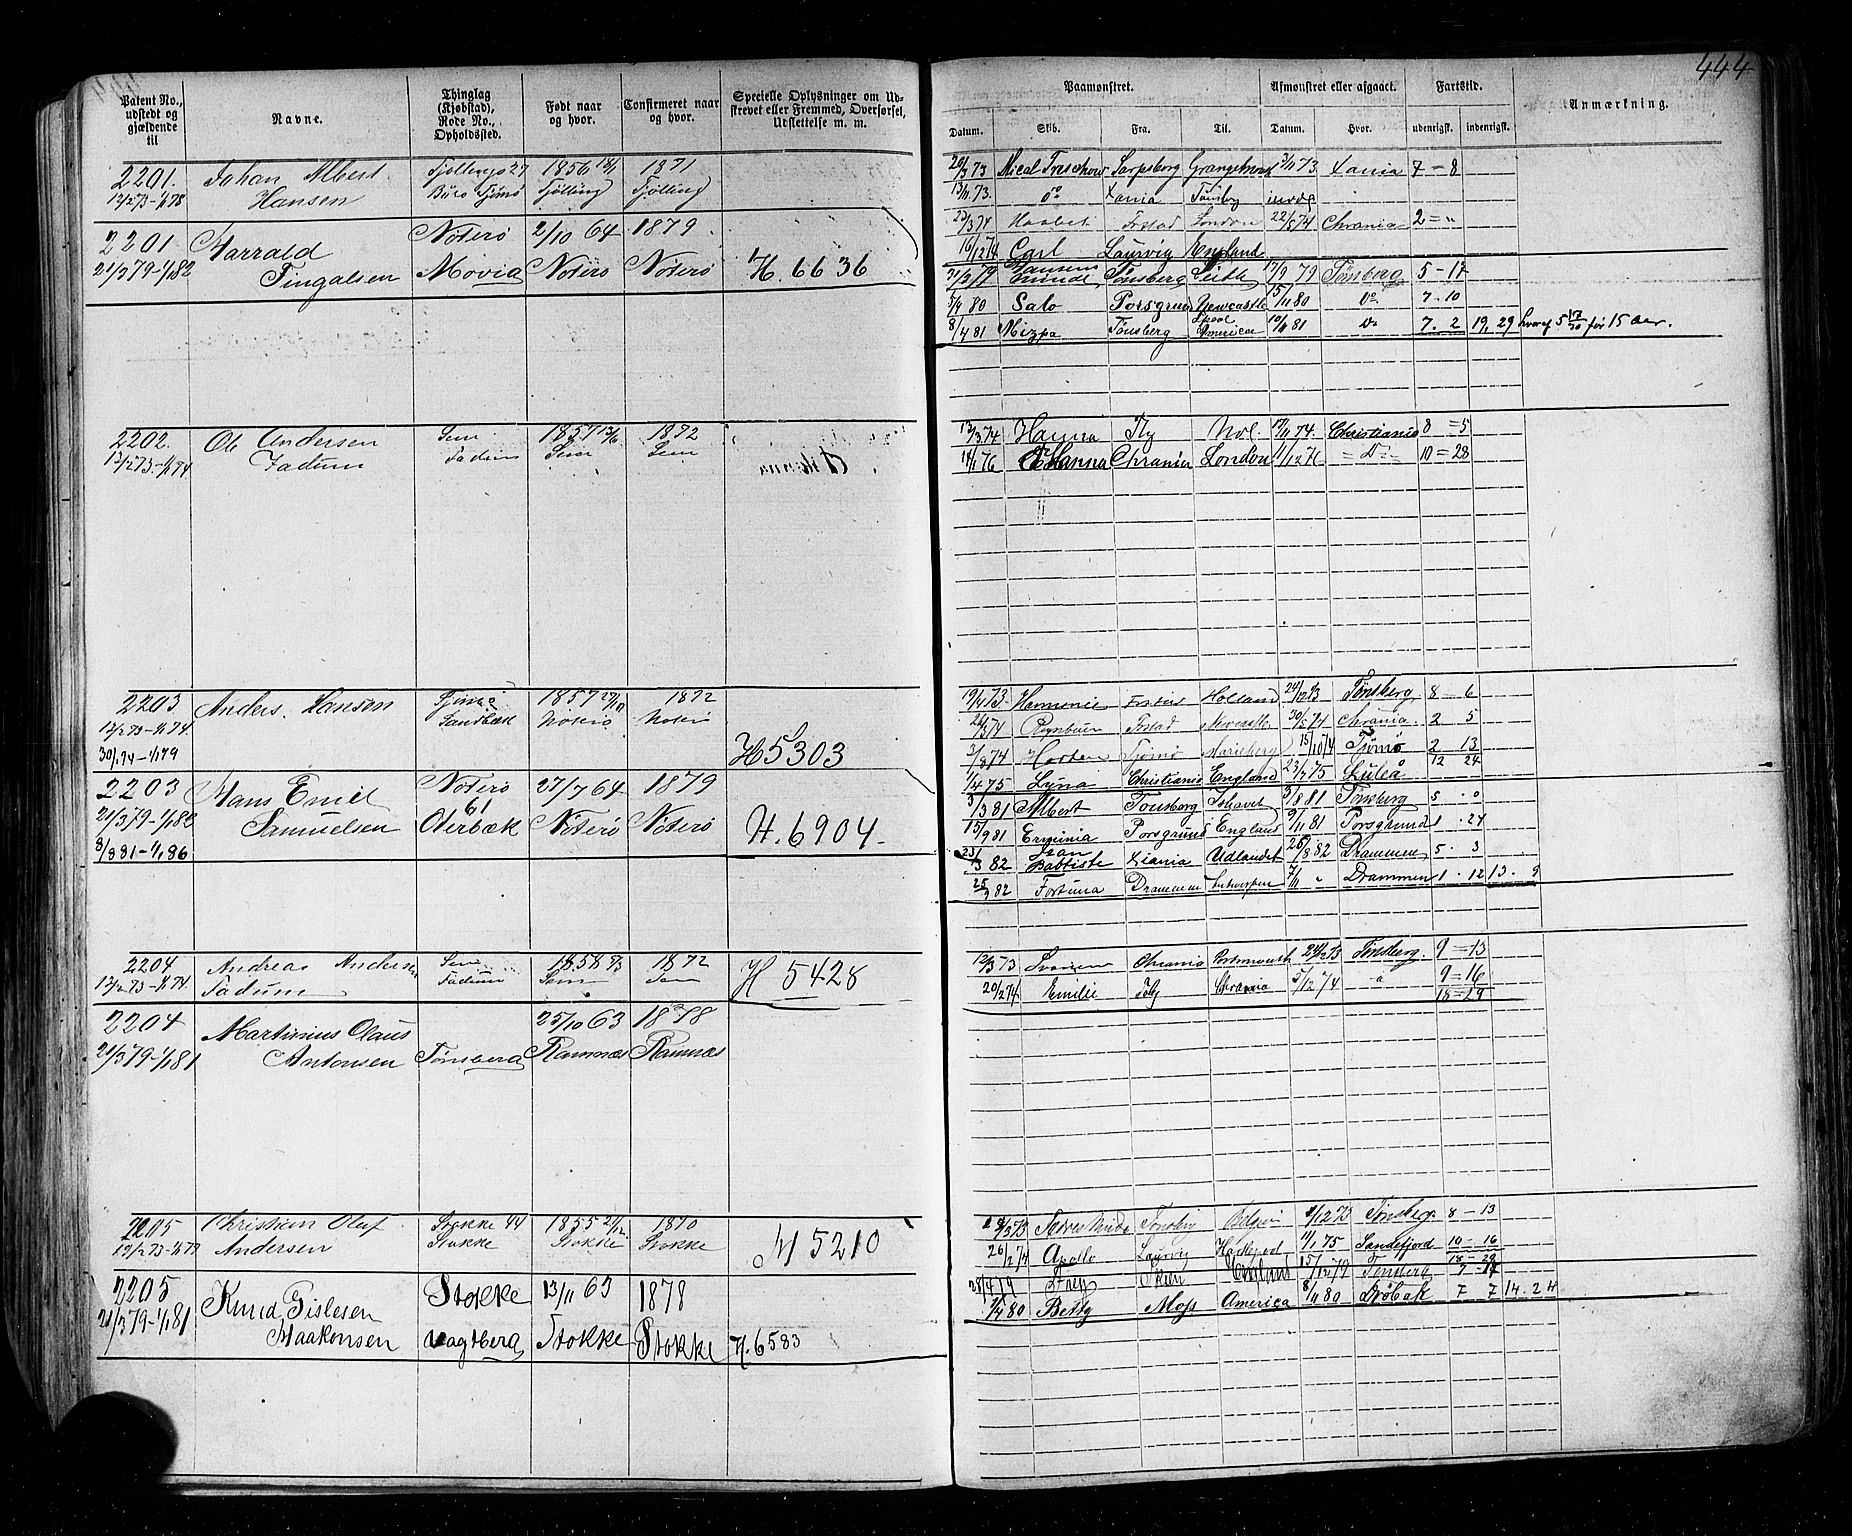 444
Patent No., udstedt og gjældende til
Navne.
Thinglag (Kjøbstad), Rode No., Opholdssted.
Født naar og hvor.
Confirmeret naar og hvor.
Specielle Oplysninger om Udskrevet eller Fremmed, Overførsel, Udslettelse m. m.
Paamønstret.
Afmønstret eller afgaaet.
Fartstid.
Anmærkning.
Datum. Skib. Fra. Til. Datum. Hvor. udenrigsk. indenrigsk.
2201. Johan Albert 1856 18/1 1871
12/2 73-1/1 78 Hansen Tjømø Tjølling Tjølling
2201 Harrald Nøterø 2/10 64 1879
21/3 79-1/1 82 Fingalsen Movia Nøterø Nøterø H. 6636
20/3 73 Sarpsborg 3/11 73 Xania 7 - 8
13/11 73 do Xania Tønsbg
22/3 74 Haabet Frstad London 22/5 74 Chrania 2 = "
16/12 74 Carl Laurvig England
21/3 79 Hansens Gunde Tønsberg Leith 17/9 79 Tønsberg 5 - 17
5/4 80 Salo Porsgrund Newcastle 15/11 80 Do 7 - 10
8/4 81 Mizpa Tønsberg America 10/11 81 Do 7. 2 19. 29 hvoraf 5 17/30 før 15 Aar.
2202. Ole Andersen Sem 1857 1872
12/2 73-1/1 74 Fadum Fadum Sem Sem
13/3 74 Hanna 17/11 74 Christiania 8 = 5
Hanna Chrania London 11/12 76 = Do = 10 = 28
2203 Anders Hansen Tjømø 1857 1872
12/2 73-1/1 74 Sandbæk Noterø Noterø
30/1 74-1/1 79 H 5303
2203 Hans Emil Nøterø 27/7 64 1879
21/3 79-1/1 82 Samuelsen 61 Oterbæk Nøterø Nøterø H. 6904.
8/8 81-1/1 86
19/4 73 Harmonie Holland 24/12 73 Tønsberg 8 - 6
Frstad Newcastle 30/5 74 Chrania. 2 5
3/8 74 Horten Tjømø Marieberg 15/10 74 Tjømø 2 13
1/4 75 Lyna Christiania England 23/7 75 Luleå 12 24
3/3 81 Albert Tønsberg Ishavet 3/8 81 Tønsberg 5 . 0
15/9 81 Erminia Porsgrund England 9/11 81 Porsgrund 1 . 24
23/3 82 Jean Babtiste Xiania Udlandet 26/8 82 Drammen 5 . 3
25/9 82 Fortuna Drammen Antwerpen 7/11 " Drammen 1 . 12 13. 9
2204 Andreas Andersen Sem 1858 1872
12/2 73-1/1 74 Fadum Fadum Sem Sem H 5428
2204 Martinius Olaus 25/10 63 1878
21/3 79-1/1 81 Antonsen Tønsberg Ramnæs Ramnæs
12/3 73 Chrania Portsmouth 24/12 73 Tønsberg. 9 = 13
20/2 74 Emilie Chrania 5/12 74 " 9 = 16
18 = 29
2205 Christian Oluf Stokke 44 1855 1870
Andersen Stokke Stokke Stokke H 5210
2205 Knud Gislesen Stokke 13/11 63 1878
21/3 79-1/1 81 Haakonsen Vagtberg Stokke Stokke H. 6583
Tønsbg 1/12 73 Tønsberg. 8 - 13
26/2 74 Apollo Laurvig 11/1 75 Sandefjord 10 - 16
18 - 29
28/4 79 Frey Skien England 15/12 79 Tønsberg 7 - 17
1/4 80 Betty Moss America 8/11 80 Drøbak 7 7 14. 24